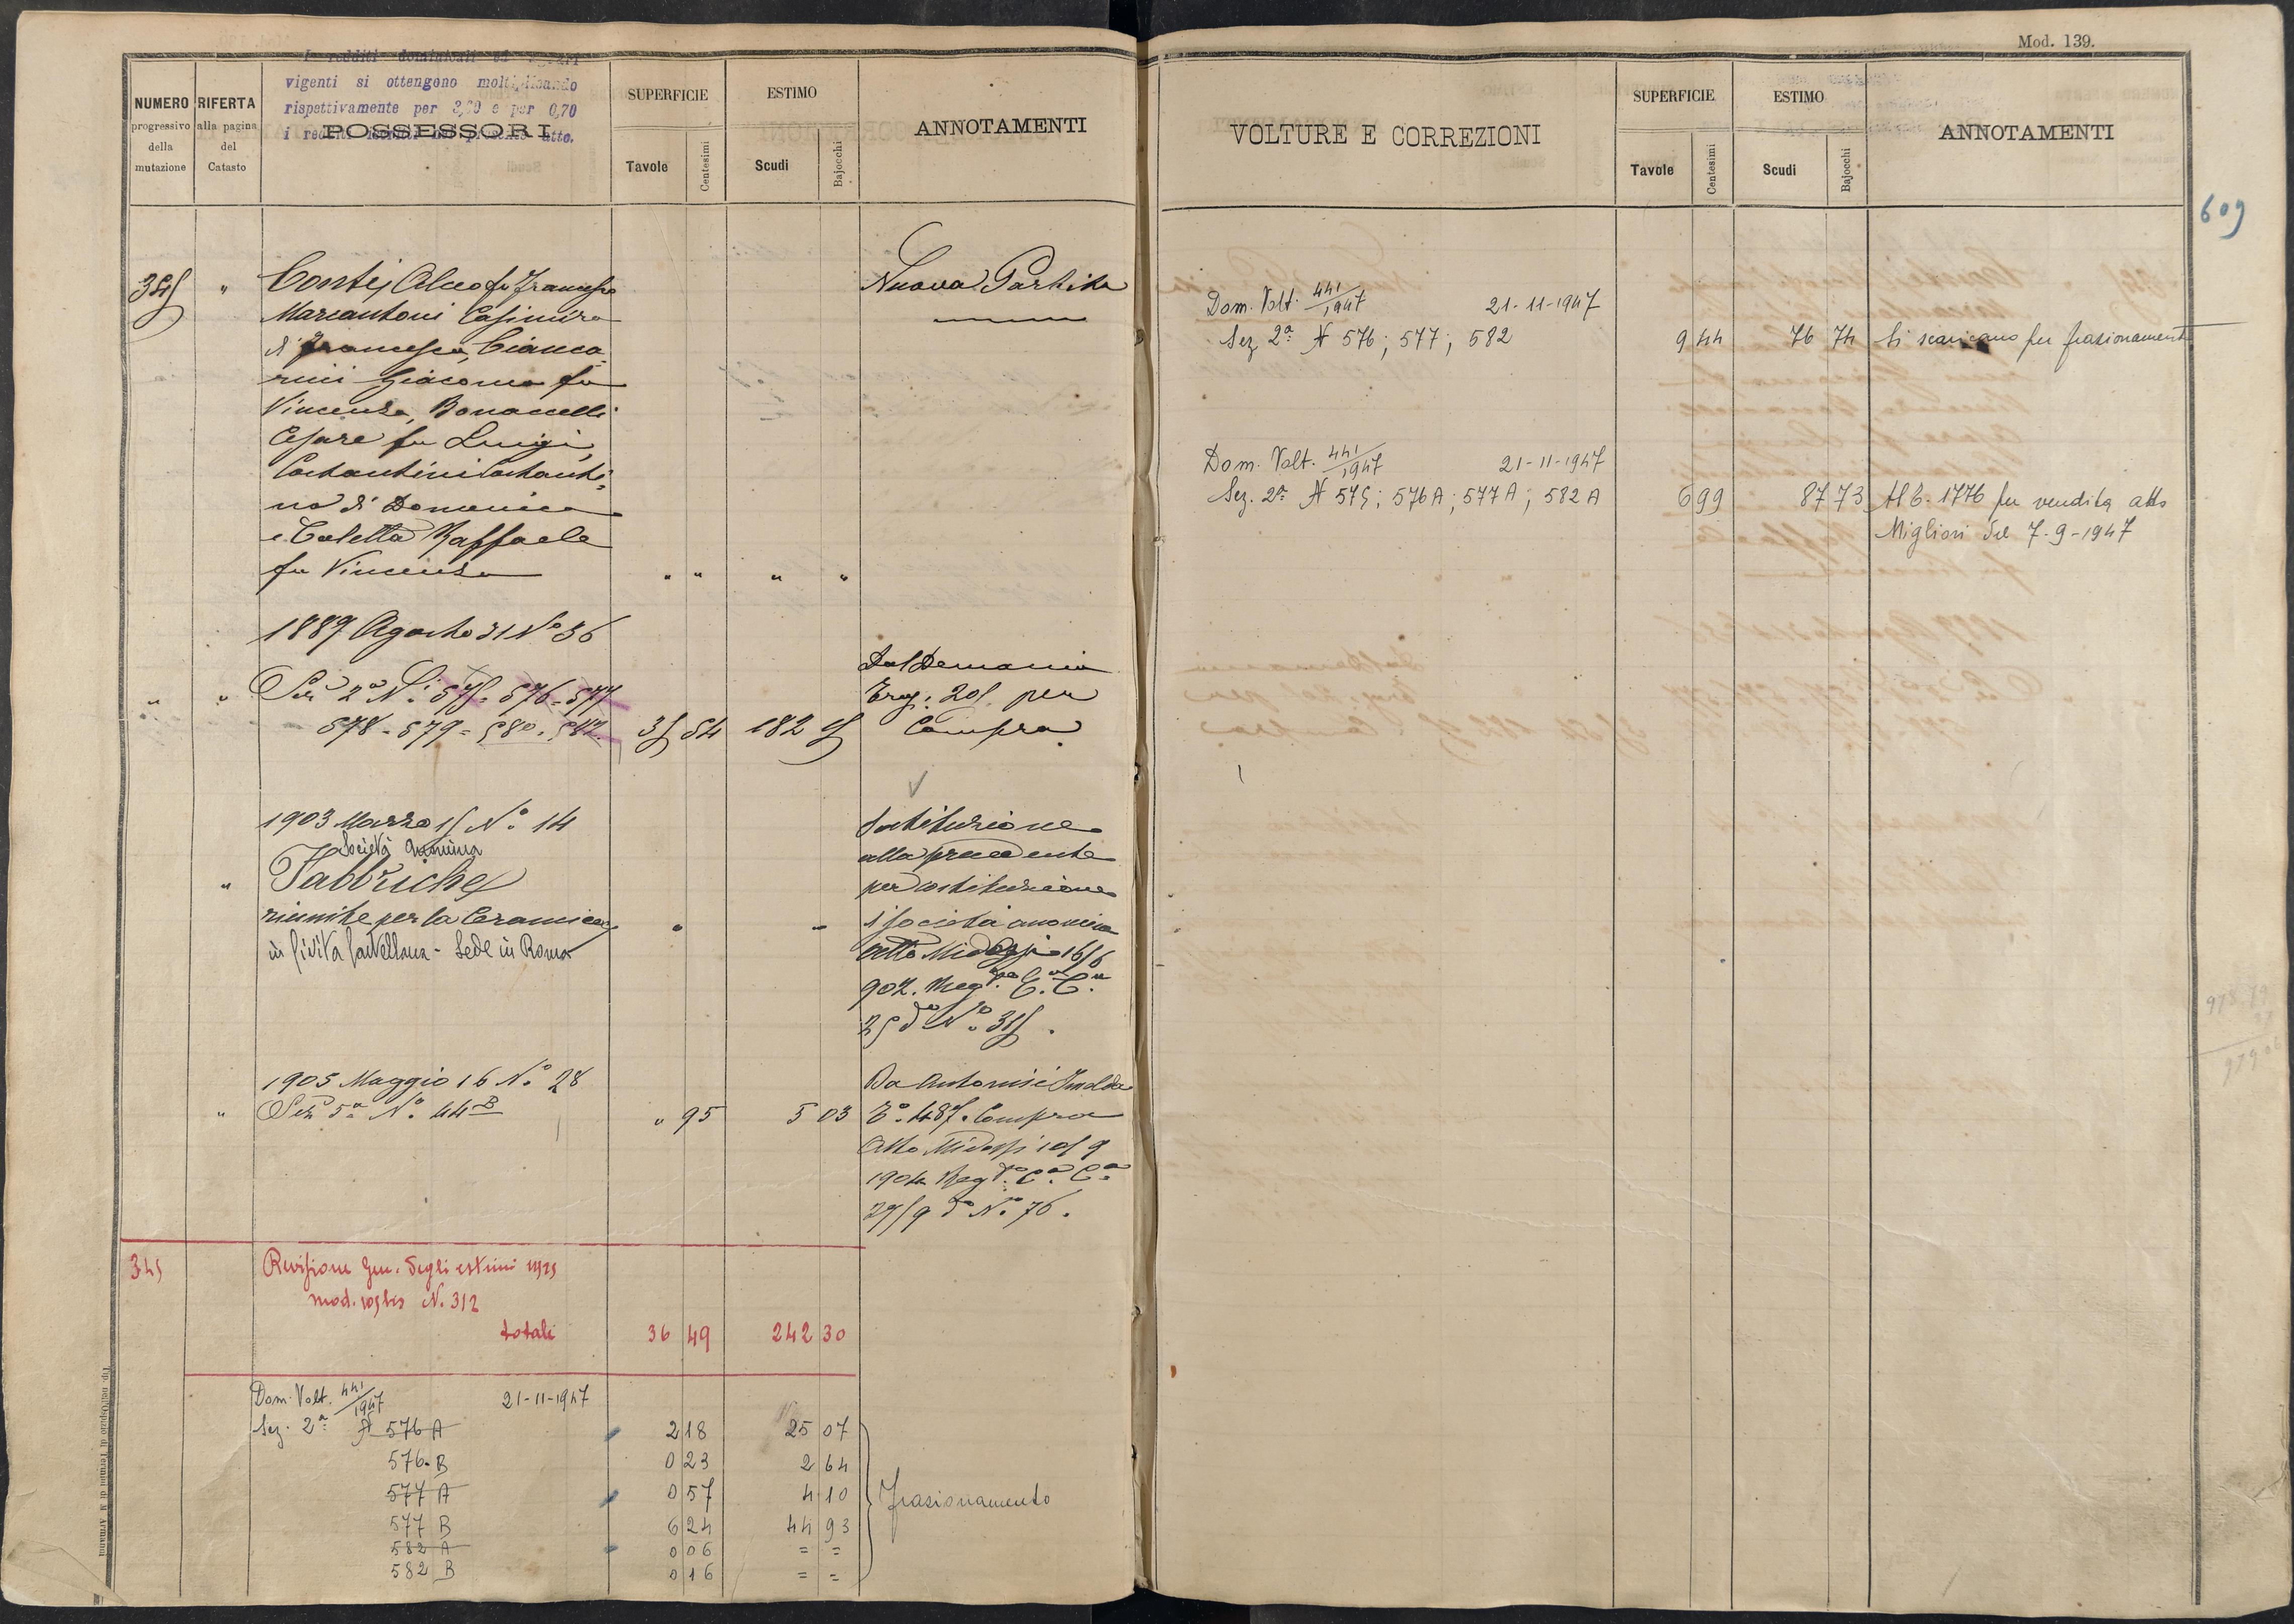 Mod. 139.
I redditi dominicali ed agrari
vigenti si ottengono moltiplicando
rispettivamente per 3,20 e per 0,70
i redditi atto.
NUMERO
progressivo
della
mutazione
RIFERTA
alla pagina
del
Catasto
POSSESSORI
SUPERFICIE
Tavole
Centesimi
ESTIMO
Scudi
Bajocchi
ANNOTAMENTI
345 " Conti Alceo fu Francesco Nuova Partita
Marcantoni Casimiro
di Francesco, Cianca
rini Giacomo fu
Vincenzo, Bonanelli
Cesare fu Luigi,
Costantini Costanti=
no di Domenico
e Coletta Raffaele
fu Vincenzo " " " "
1889 Agosto 31 No 36
Dal Demanio
" " Sez 2a Ni 575 - 576 - 577 205 per
578 - 579 - 580 - 582 35 54 182 5 Compra
1903 Marzo 15 No. 14 Sostituzione
Società Anonima alla precedente
" Fabbriche per costituzione
riunite per la Ceramica " " di società anonima
in Civita Castellana - Sede in Roma atto Midossi 16/6
902. Regto. C. Cna
25 do No. 315.
1905 Maggio 16 No. 28 Da Antonisi Imolda
" Sez 5a No. 44 B " 95 5 03 To. 487. Compra
Atto Midossi 10/9
1904 Regto. Ca. Ca.
27/9 do No. 76.
345 Revisione Gen. degli estimi 1925
mod. 105 bis N. 312
totali 36 49 242 30
Dom. Volt. 441/1947 21-11-1947
Sez. 2a N 576 A 2 18 25 07
576 B 0 23 2 64
577 A 0 57 4 10 frazionamento
577 B 6 24 44 93
582 A 0 06 = =
582 B 0 16 = =
VOLTURE E CORREZIONI
SUPERFICIE
Tavole
Centesimi
ESTIMO
Scudi
Bajocchi
ANNOTAMENTI
609
Dom. Volt. 441/1947 21-11-1947
Sez 2a N 576; 577; 582 9 44 76 74 Si scaricano per frazionamento
Dom. Volt. 441/1947 21-11-1947
Sez. 2a N 575; 576 A; 577 A; 582 A 6 99 87 73 Al T. 1776 per vendita atto
Migliori del 7-9-1947